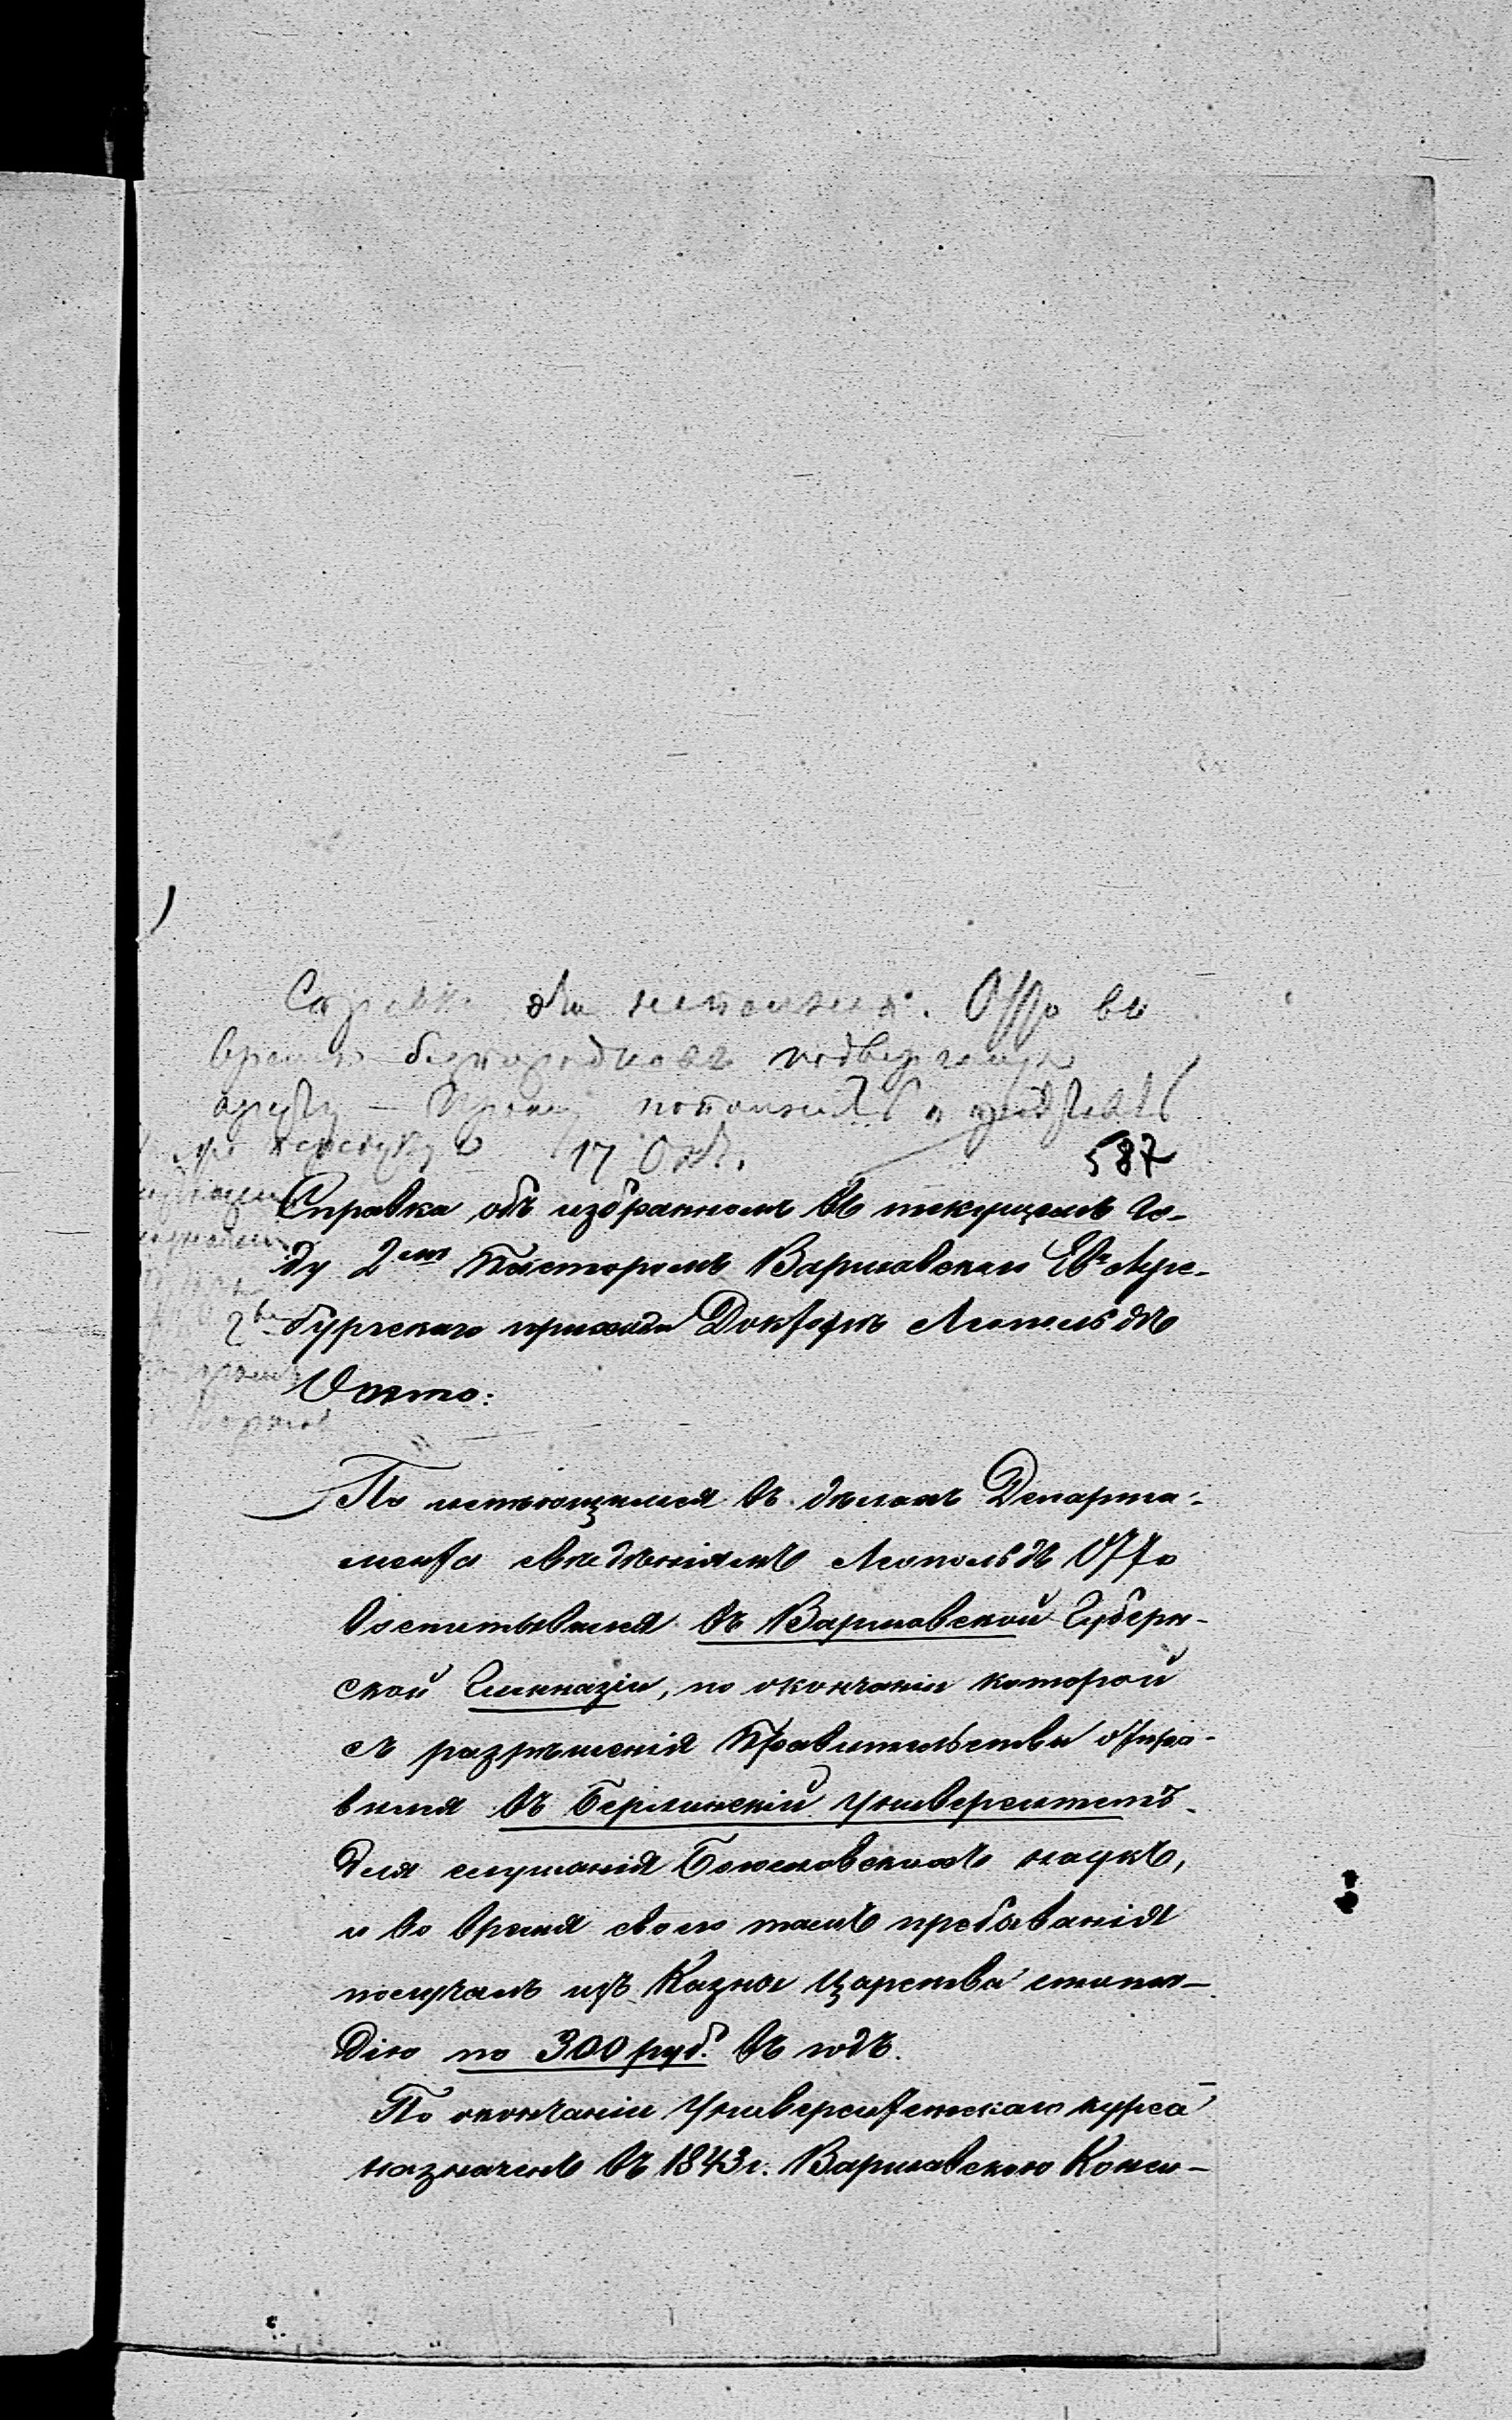 Отто во
время безпорядковъ подвергался
аресту —
17 Окт.
587
Справка объ избранномъ въ текущемъ го-
ду 2мъ Пасторомъ Варшавскаго Ев. Аугс-
бургскаго прихода Докторѣ Леопольдѣ
Отто:
По имѣющимся въ дѣлахъ Департа-
мента свѣдѣніямъ Леопольдъ Отто
воспитывался въ Варшавской Губерн-
ской Гимназіи, по окончаніи которой
съ разрѣшенія Правительства отпра-
вился въ Берлинскій Университетъ
для слушанія Богословскихъ наукъ,
и во время своего тамъ пребыванія
получалъ изъ Казны Царства стипен-
дію по 300 руб. въ годъ.
По окончаніи Университетскаго курса
назначенъ въ 1843 г. Варшавскою Конси-